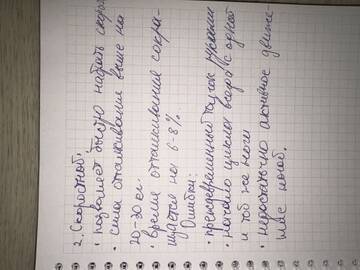 2. Скоростной:
• позволяет быстро набрать скорос
• сила отталкивания выше на
20-30 кг.
• время отталкивания сокра-
щается на 6-8%
Ошибки:
• преждевременный толчок руками
• начало цикла всегда с одной
и той же ноги
• недостаточно активное движе-
ние ногой.